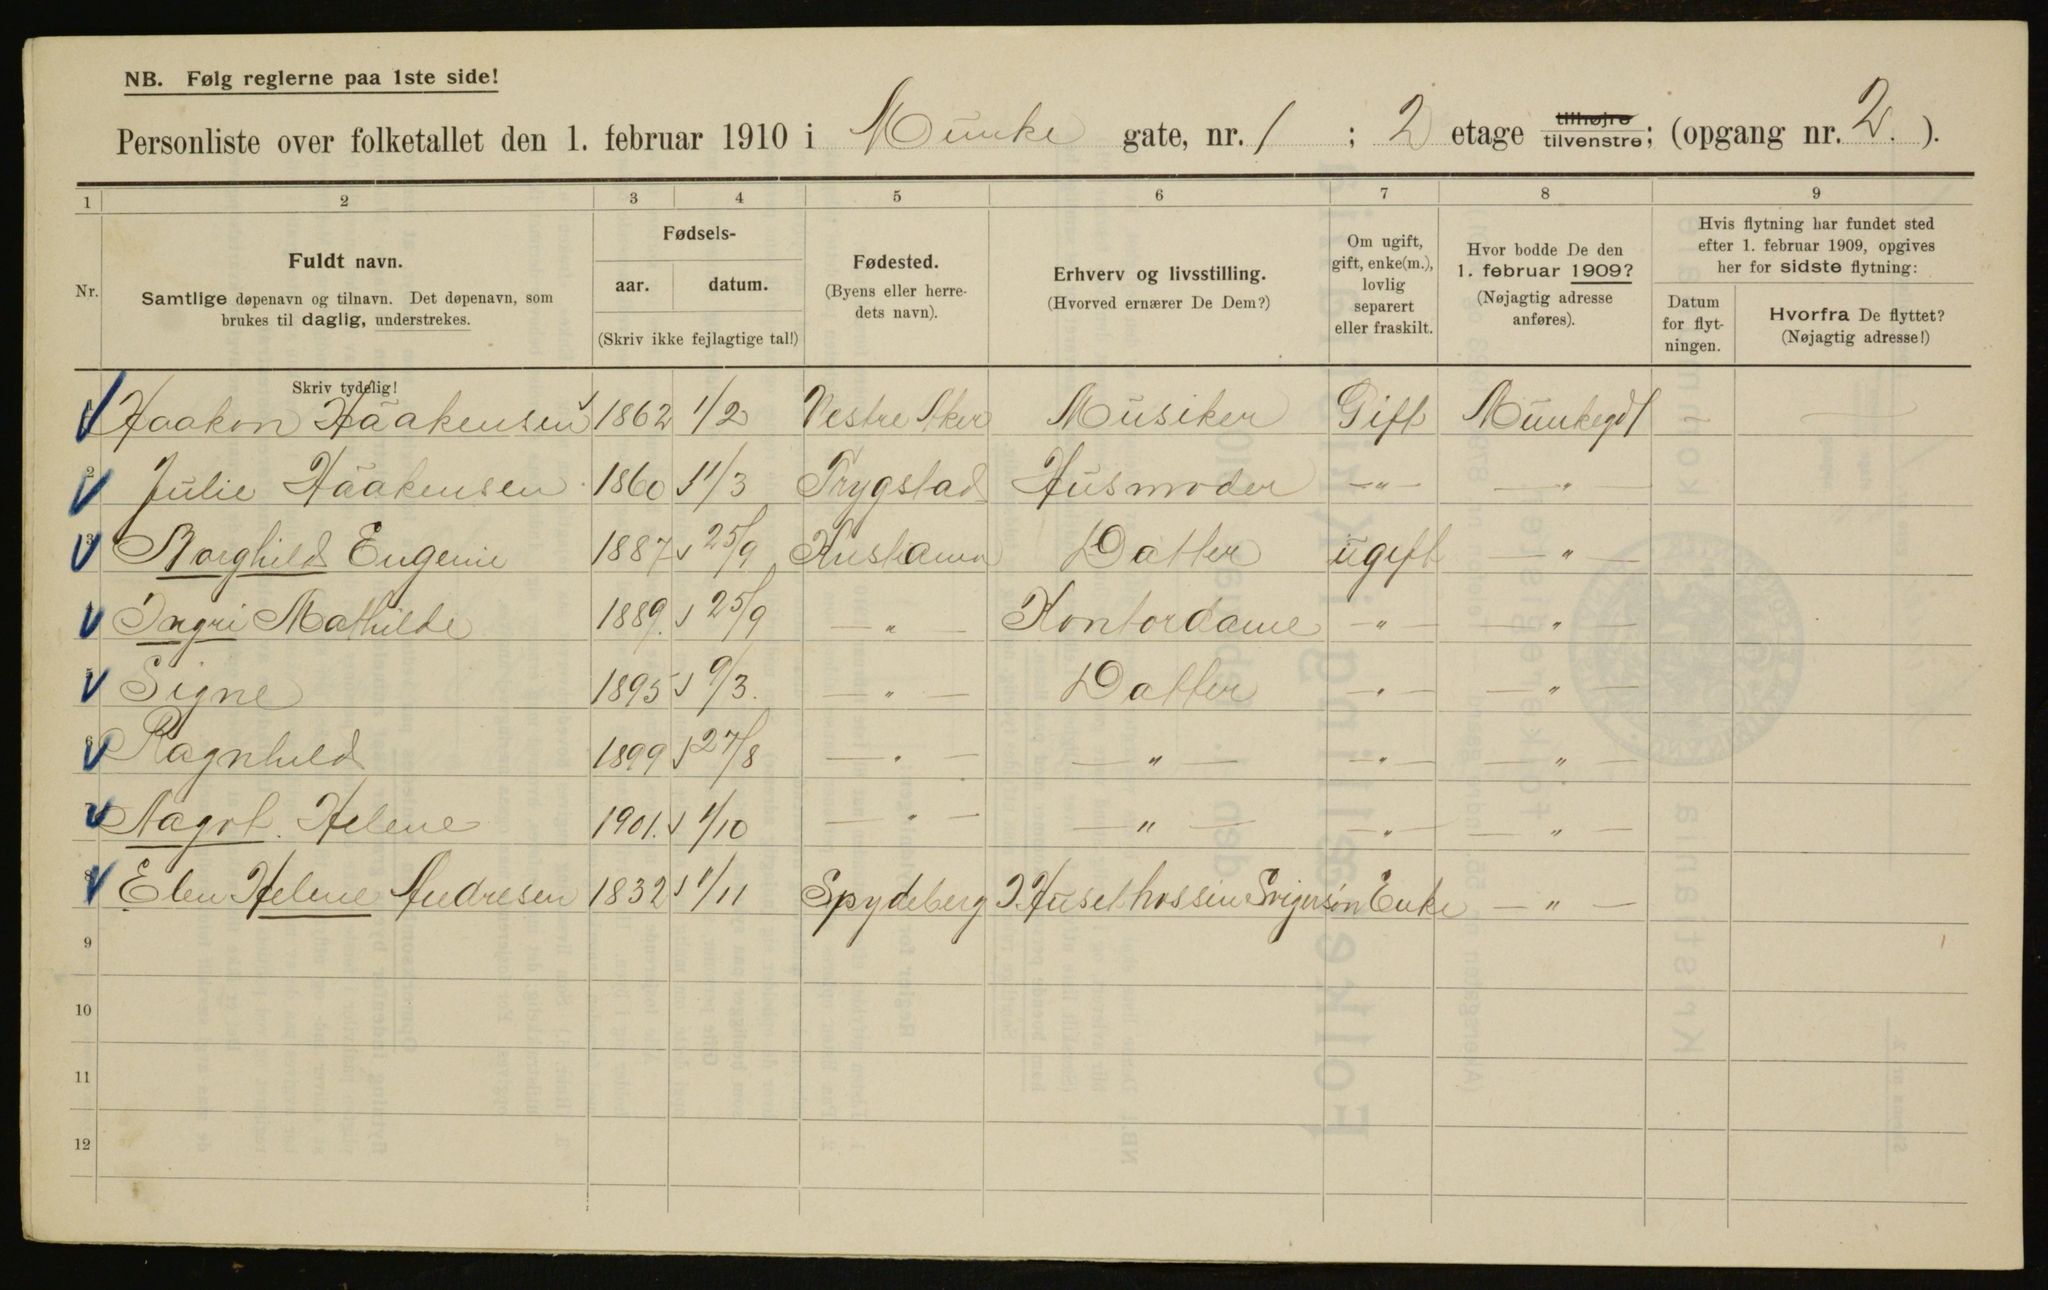 NB. Følg reglerne paa 1ste side!
Personliste over folketallet den 1. februar 1910 i Munke gate, nr. 1 ; 2 etage tilhøjre tilvenstre; (opgang nr. 2. ).
1 2 3 4 5 6 7 8 9
Nr. Fuldt navn. Samtlige døpenavn og tilnavn. Det døpenavn, som brukes til daglig, understrekes.
Fødsels- aar. datum. (Skriv ikke fejlagtige tal!)
Fødested. (Byens eller herredets navn).
Erhverv og livsstilling. (Hvorved ernærer De Dem?)
Om ugift, gift, enke(m.), lovlig separert eller fraskilt.
Hvor bodde De den 1. februar 1909? (Nøjagtig adresse anføres).
Hvis flytning har fundet sted efter 1. februar 1909, opgives her for sidste flytning:
Datum for flytningen. Hvorfra De flyttet? (Nøjagtig adresse!)
Skriv tydelig!
Haakon Haakensen 1862 1/2 Vestre Aker Musiker Gift Munkegd 1 —
2 Julie Haakensen 1860 11/3 Trygstad Husmoder —"— —"—
3 Borghild Eugenie 1887 25/9 Kristiania Datter ugift —"—
Ingri Mathilde 1889. 25/9 —"— Kontordame —"— —"—
5 Signe 1895 9/3. —"— Datter —"— —"—
6 Ragnhild 1899 27/8 —"— —"— —"— —"—
7 Aagot. Helene 1901. 1/10 —"— —"— —"— —"—
8 Elen Helene Andresen 1832 1/11 Spydeberg I Huset hos sin Svigersøn Enke —"—
9
10
11
12